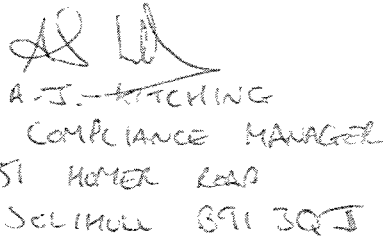 A.J. KITCHING
COMPLIANCE MANAGER
51 HOMER ROAD
SOLIHULL B91 3QJ